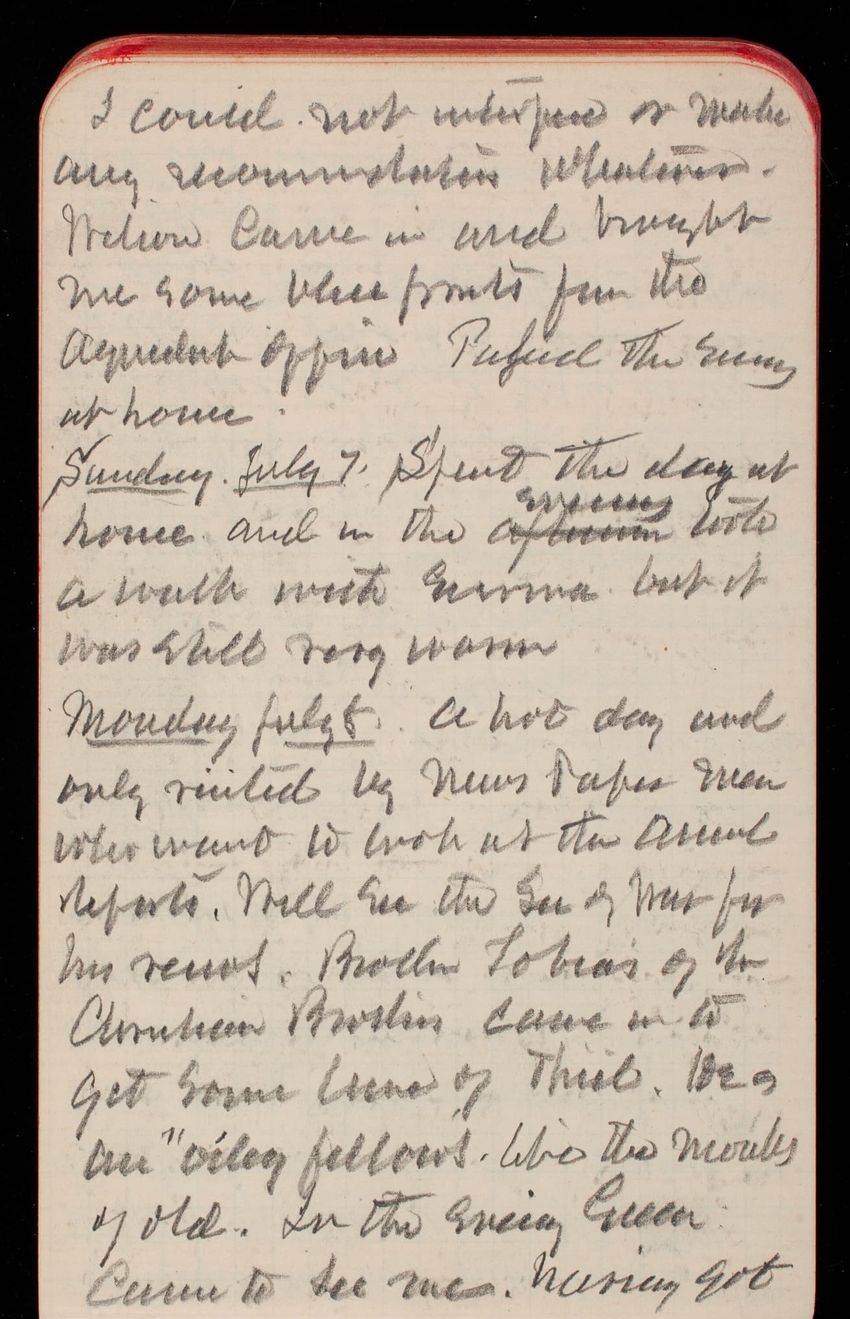 I could not interfere or make
any recommendation whatever.
Wilson came in and brought
me some blue prints from the
Aqueduct office Passed the Evening
at home.
Sunday. July 7. Spent the day at
home and in the afternoon evening took
a walk with Emma but it
was still very warm
Monday July 8. A hot day and
only visited by News Paper men
who want to look at the Annual
reports. Will See the Sec of War for
his views. Brother Tobias of the
Christian Brothers came in to
get some of Thiel. He is
an "oiley fellow". like the monks
of old. In the Evening Green
Came to see me. Having got